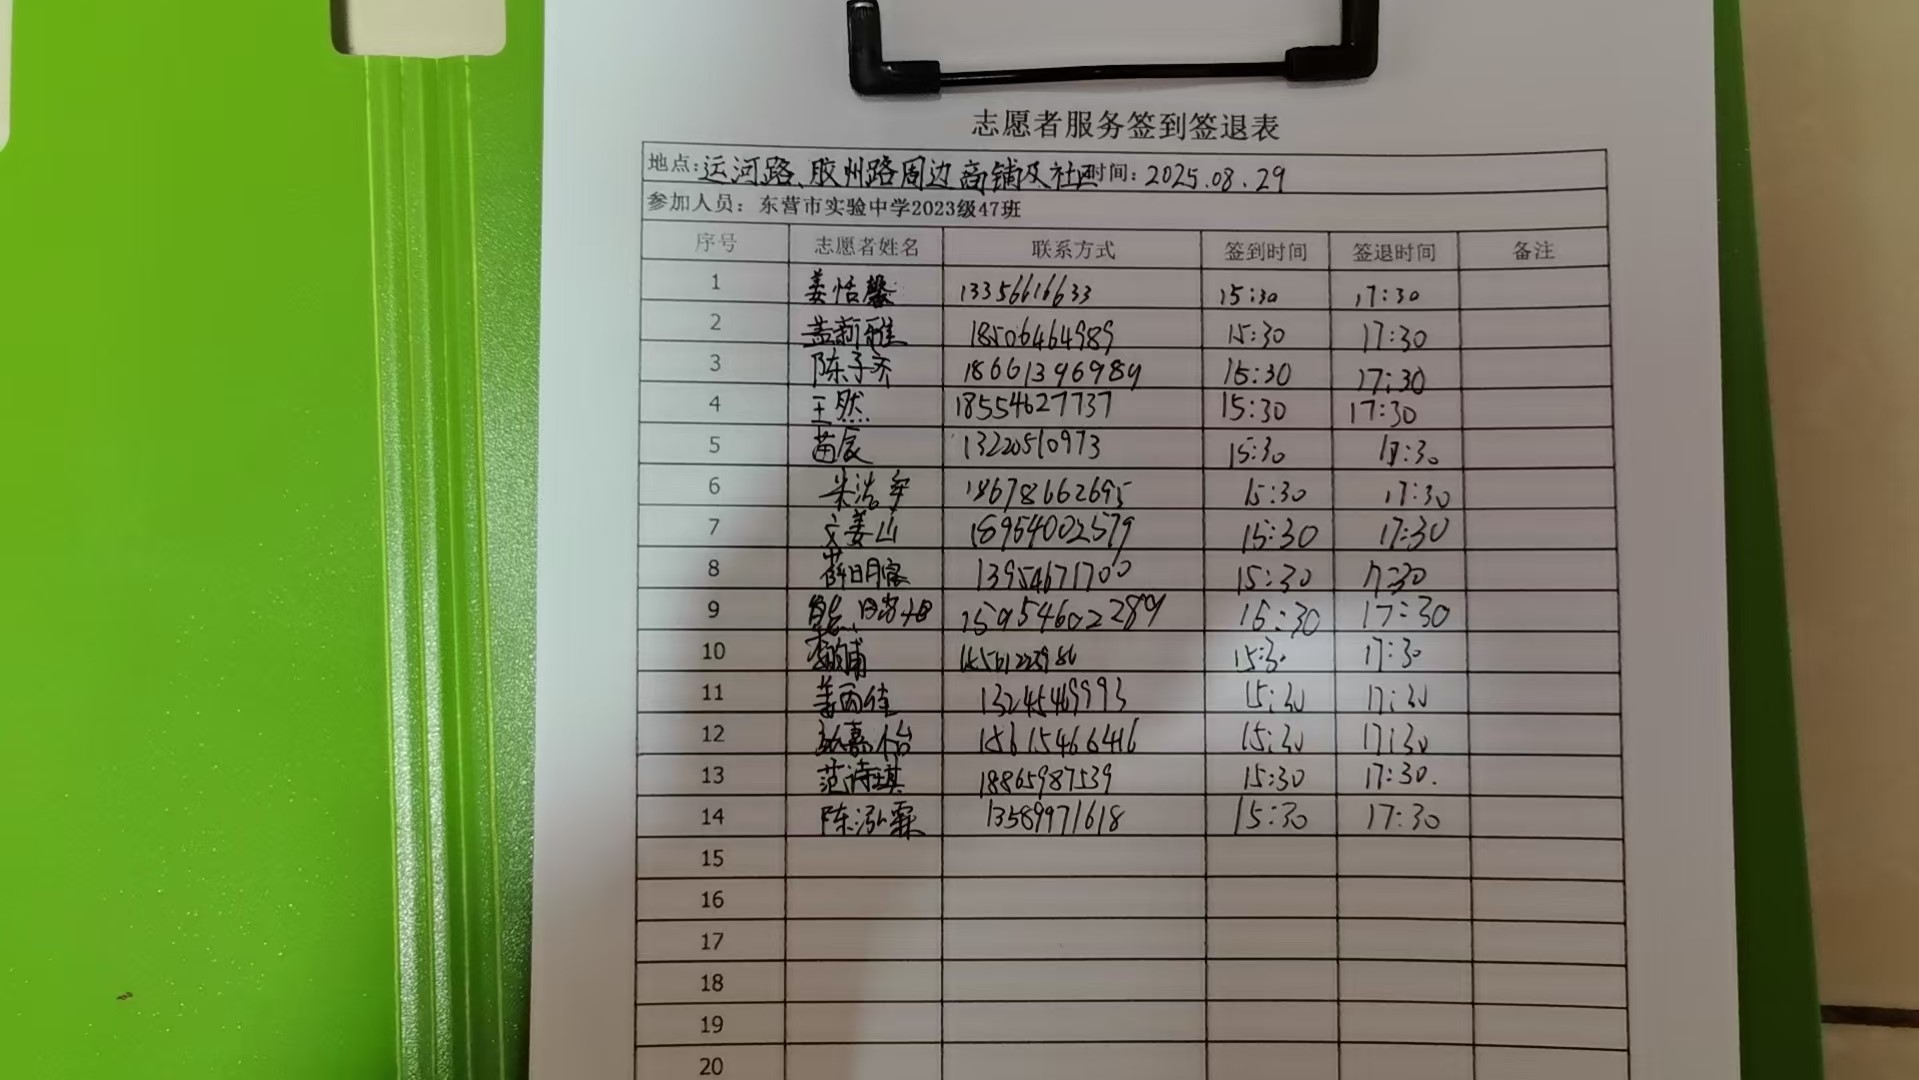 志愿者服务签到签退表
地点:运河路、胶州路周边商铺及社区时间:2025.08.29
参加人员:东营市实验中学2023级47班
序号 志愿者姓名 联系方式 签到时间 签退时间 备注
1 姜恬馨 13356616633 15:30 17:30
2 盖新雅 18506464989 15:30 17:30
3 陈子齐 18661396989 15:30 17:30
4 王然 18554627737 15:30 17:30
5 苗辰 13220510973 15:30 17:30
6 18678662695 15:30 17:30
7 18954002579 15:30 17:30
8 13954671700 15:30 17:30
9 15954602289 15:30 17:30
10 15:30 17:30
11 姜雨佳 15:30 17:30
12 15615466416 15:30 17:30
13 范诗琪 18865987539 15:30 17:30.
14 陈泓霖 13589971618 15:30 17:30
15
16
17
18
19
20